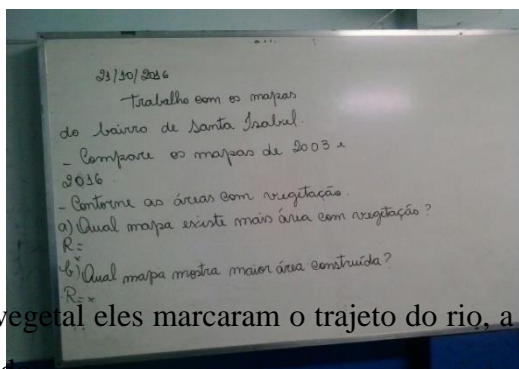 21/10/2016
Trabalho com os mapas
do bairro de Santa Isabel.
- Compare os mapas de 2003 e
2016.
- Contorne as áreas com vegetação.
a) Qual mapa existe mais área com vegetação?
R=
b) Qual mapa mostra maior área construída?
R=
vegetal eles marcaram o trajeto do rio, a